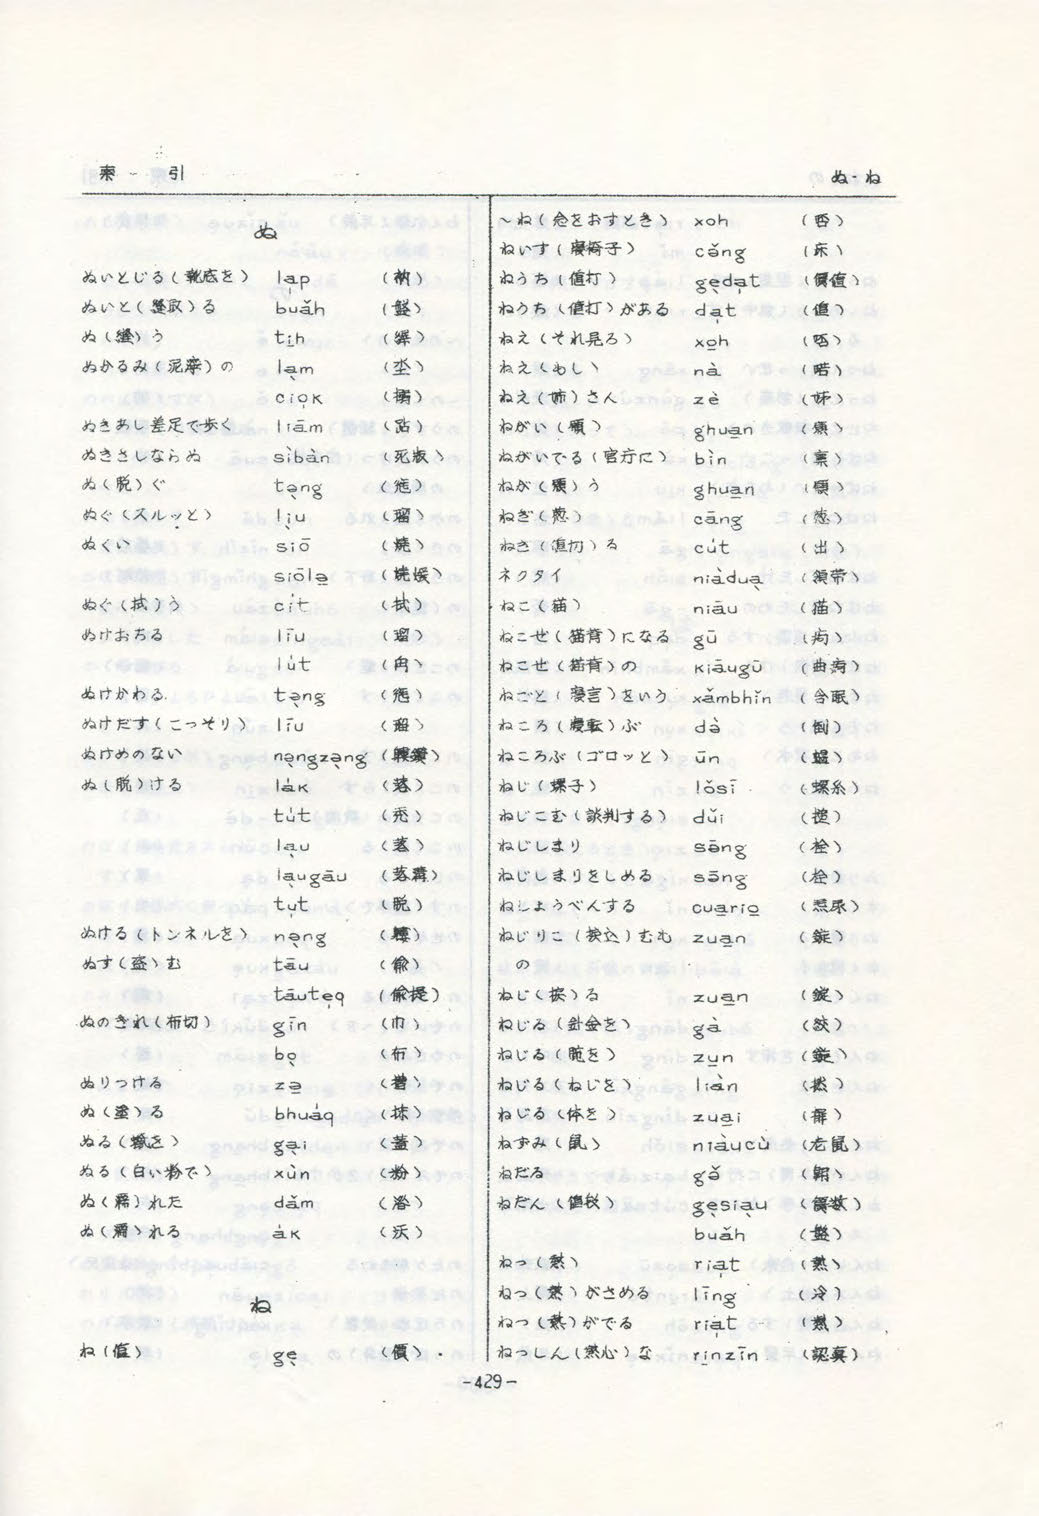 索 引
ぬ・ね
ぬ
ぬいとじる(靴底を) la̩p (衲)
ぬいと(縫取)る buǎh (盤)
ぬ(縫)う ti̲h (繹)
ぬかるみ(泥濘)の lạm (坔)
cio̩k
ぬきあし差足で歩く liām (跕)
ぬきさしならぬ sìbàn (死版)
ぬ(脱)ぐ tə̣ng
ぬぐ(スルッと) lịu (瑠)
ぬくい siō (燒)
siōlə̲ (燒煖)
ぬぐ(拭)う ci̍t (拭)
ぬけおちる līu (瑠)
lu̍t
ぬけかわる tə̣ng
ぬけだす(こっそり) līu (瑠)
ぬけめのない nə̣ngzə̣ng (軁鑽)
ぬ(脱)ける la̍k (落)
tu̍t (禿)
lạu (落)
lạugāu
tụt (脱)
ぬける(トンネルを) nə̣ng (軁)
ぬす(盗)む tāu (偸)
tāute̩q (偸提)
ぬのきれ(布切) gīn (巾)
bọ (布)
ぬりつける zə̲
ぬ(塗)る bhua̍q (抹)
ぬる(蠟を) gại (蓋)
ぬる(白い粉で) xùn (粉)
ぬ(濡)れた dǎm
ぬ(濡)れる a̍k (沃)
ね
ね(値) gẹ (價)
~ね(念をおすとき) xoh
ねいす(寝椅子) cǎng (床)
ねうち(値打) gẹda̩t (價值)
ねうち(値打)がある da̩t (值)
ねえ(それ見ろ) xo̲h
ねえ(もし) nà (喏)
ねえ(姉)さん zè (姊)
ねがい(願) ghua̲n (願)
ねがいでる(官庁に) bìn (稟)
ねが(願)う ghua̲n (願)
ねぎ(葱) cāng (葱)
ねぎ(値切)る cu̍t (出)
ネクタイ niàduạ (領帯)
ねこ(猫) niāu (猫)
ねこぜ(猫背)になる gū (痀)
ねこぜ(猫背)の kiāugū (曲痀)
ねごと(寝言)をいう xǎmbhǐn (含眠)
ねころ(寝転)ぶ dà (倒)
ねころぶ(ゴロッと) ūn
ねじ(螺子) lǒsī (螺糸)
ねじこむ(談判する) dǔi (搥)
ねじしまり sāng (栓)
ねじしまりをしめる sāng (栓)
ねしょうべんする cua̲rio̲
ねじりこ(捩込)むむ zua̲n (錠)
の
ねじ(捩)る zua̲n (錠)
ねじる(針金を) gà (鉸)
ねじる(腕を) zu̲n
ねじる(ねじを) liàn (撚)
ねじる(体を) zua̲i
ねずみ(鼠) niàucù (老鼠)
ねだる gǒ
ねだん(値段) gẹsiạu (價數)
buǎh (盤)
ねっ(熱) ria̩t (熱)
ねっ(熱)がさめる līng (冷)
ねつ(熱)がでる ria̩t (熱)
ねっしん(熱心)な ri̲nzīn (認真)
-429-